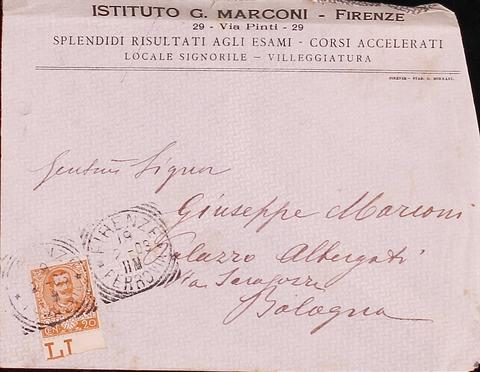 ISTITUTO G. MARCONI - FIRENZE
29 - Via Pinti - 29
SPLENDIDI RISULTATI AGLI ESAMI - CORSI ACCELERATI
LOCALE SIGNORILE - VILLEGGIATURA
Signor
Giuseppe Marconi
Palazzo Albergati
Via Saragozza
Bologna
FIRENZE
FERROVIA
CEN 20
LI